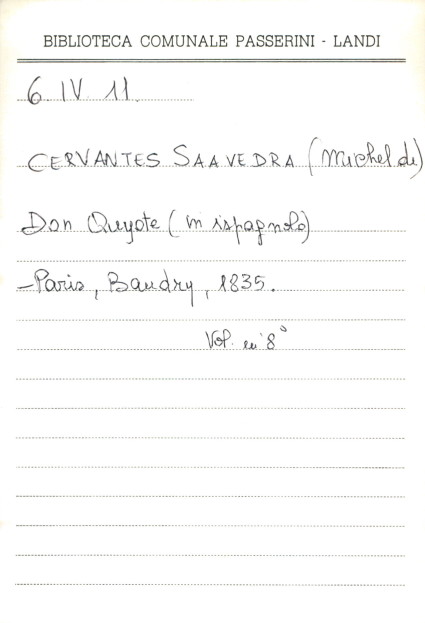 BIBLIOTECA COMUNALE PASSERINI - LANDI
6. IV. 11.
CERVANTES SAAVEDRA (Michel de)
Don Quyote (in ispagnolo)
- Paris, Baudry, 1835.
Vol. in 8°